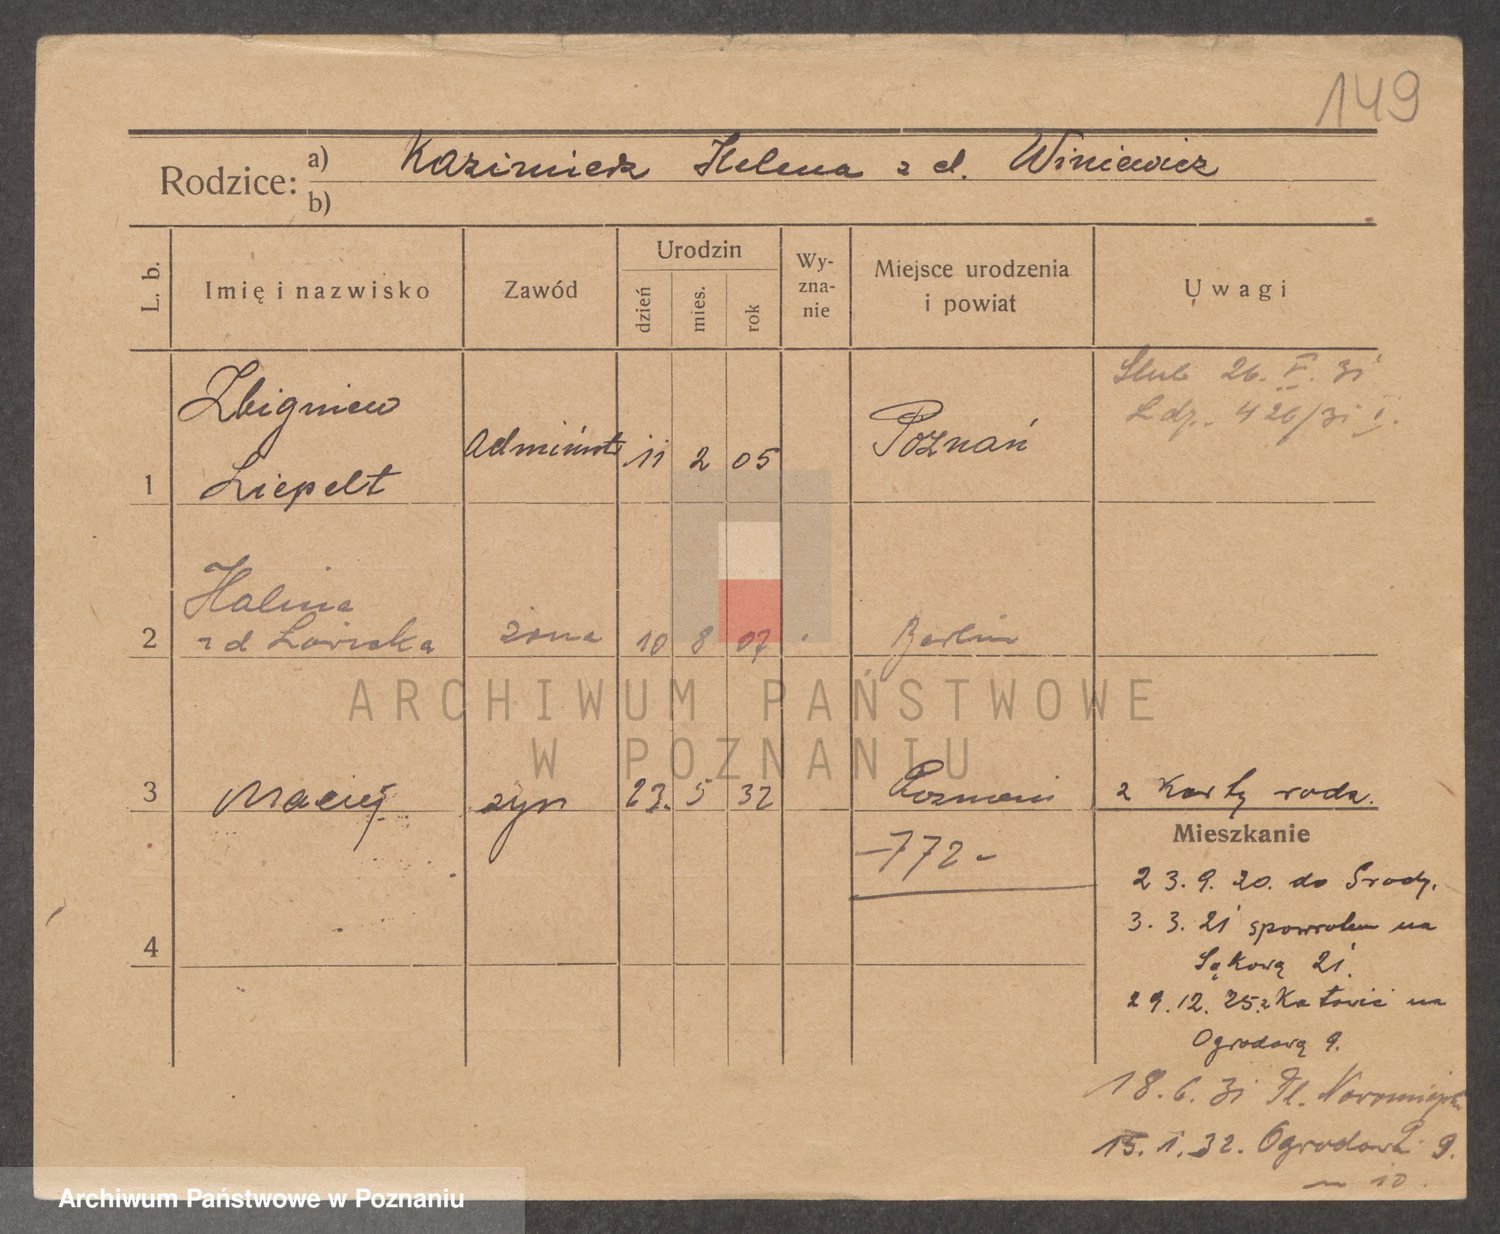 149
Rodzice: a) Kazimierz Helena z d. Winiewicz
b)
L. b.
Imię i nazwisko
Zawód
Urodzin
dzień
mies.
rok
Wy-
zna-
nie
Miejsce urodzenia
i powiat
Uwagi
Zbigniew
1 Liepelt
11 2 05 Poznań
Ślub 26. V. 31
426/31
Halina
2 z d
żona 10 8 07 Berlin
3 Maciej syn 23. 5 32 Poznań 2 Karty rodz.
-772-
4
Mieszkanie
23. 9. 20. do Środy.
3. 3. 21 spowrotem na
Łąkową 21.
29. 12. 25. z Katowic na
Ogrodową 9.
18. 6. 31 Pl. Nowomiejski
15. 1. 32. Ogrodowa 9.
m 10.
ARCHIWUM PAŃSTWOWE
W POZNANIU
Archiwum Państwowe w Poznaniu